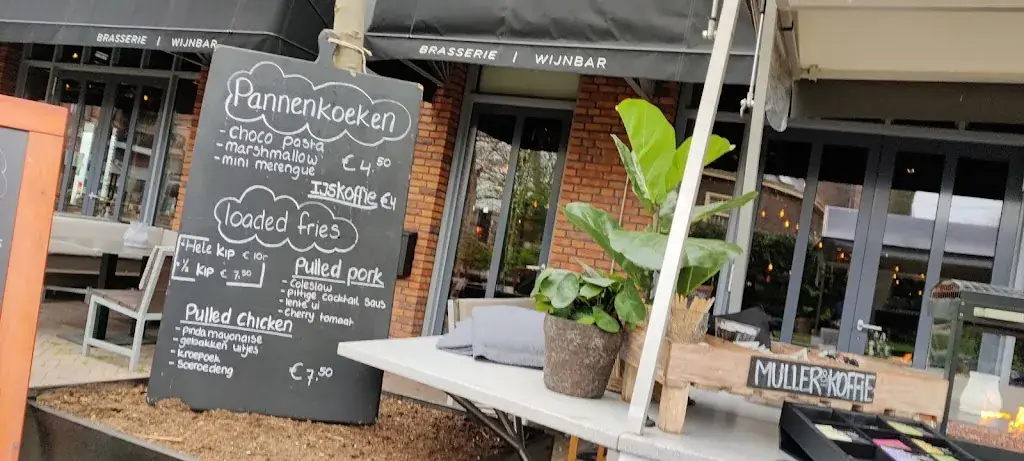 BRASSERIE | WIJNBAR
BRASSERIE | WIJNBAR
Pannenkoeken
- choco pasta
- marshmallow
- mini merengue
€4,50
IJSKOFFIE €4
loaded fries
• Hele Kip € 10,-
• ½ KIP € 7,50
Pulled pork
- coleslaw
- pittige cocktail saus
- lente ui
- cherry tomaat
Pulled chicken
- pindamayonaise
- gebakken uitjes
- kroepoek
- soeroedeng
€7,50
MULLER & KOFFIE